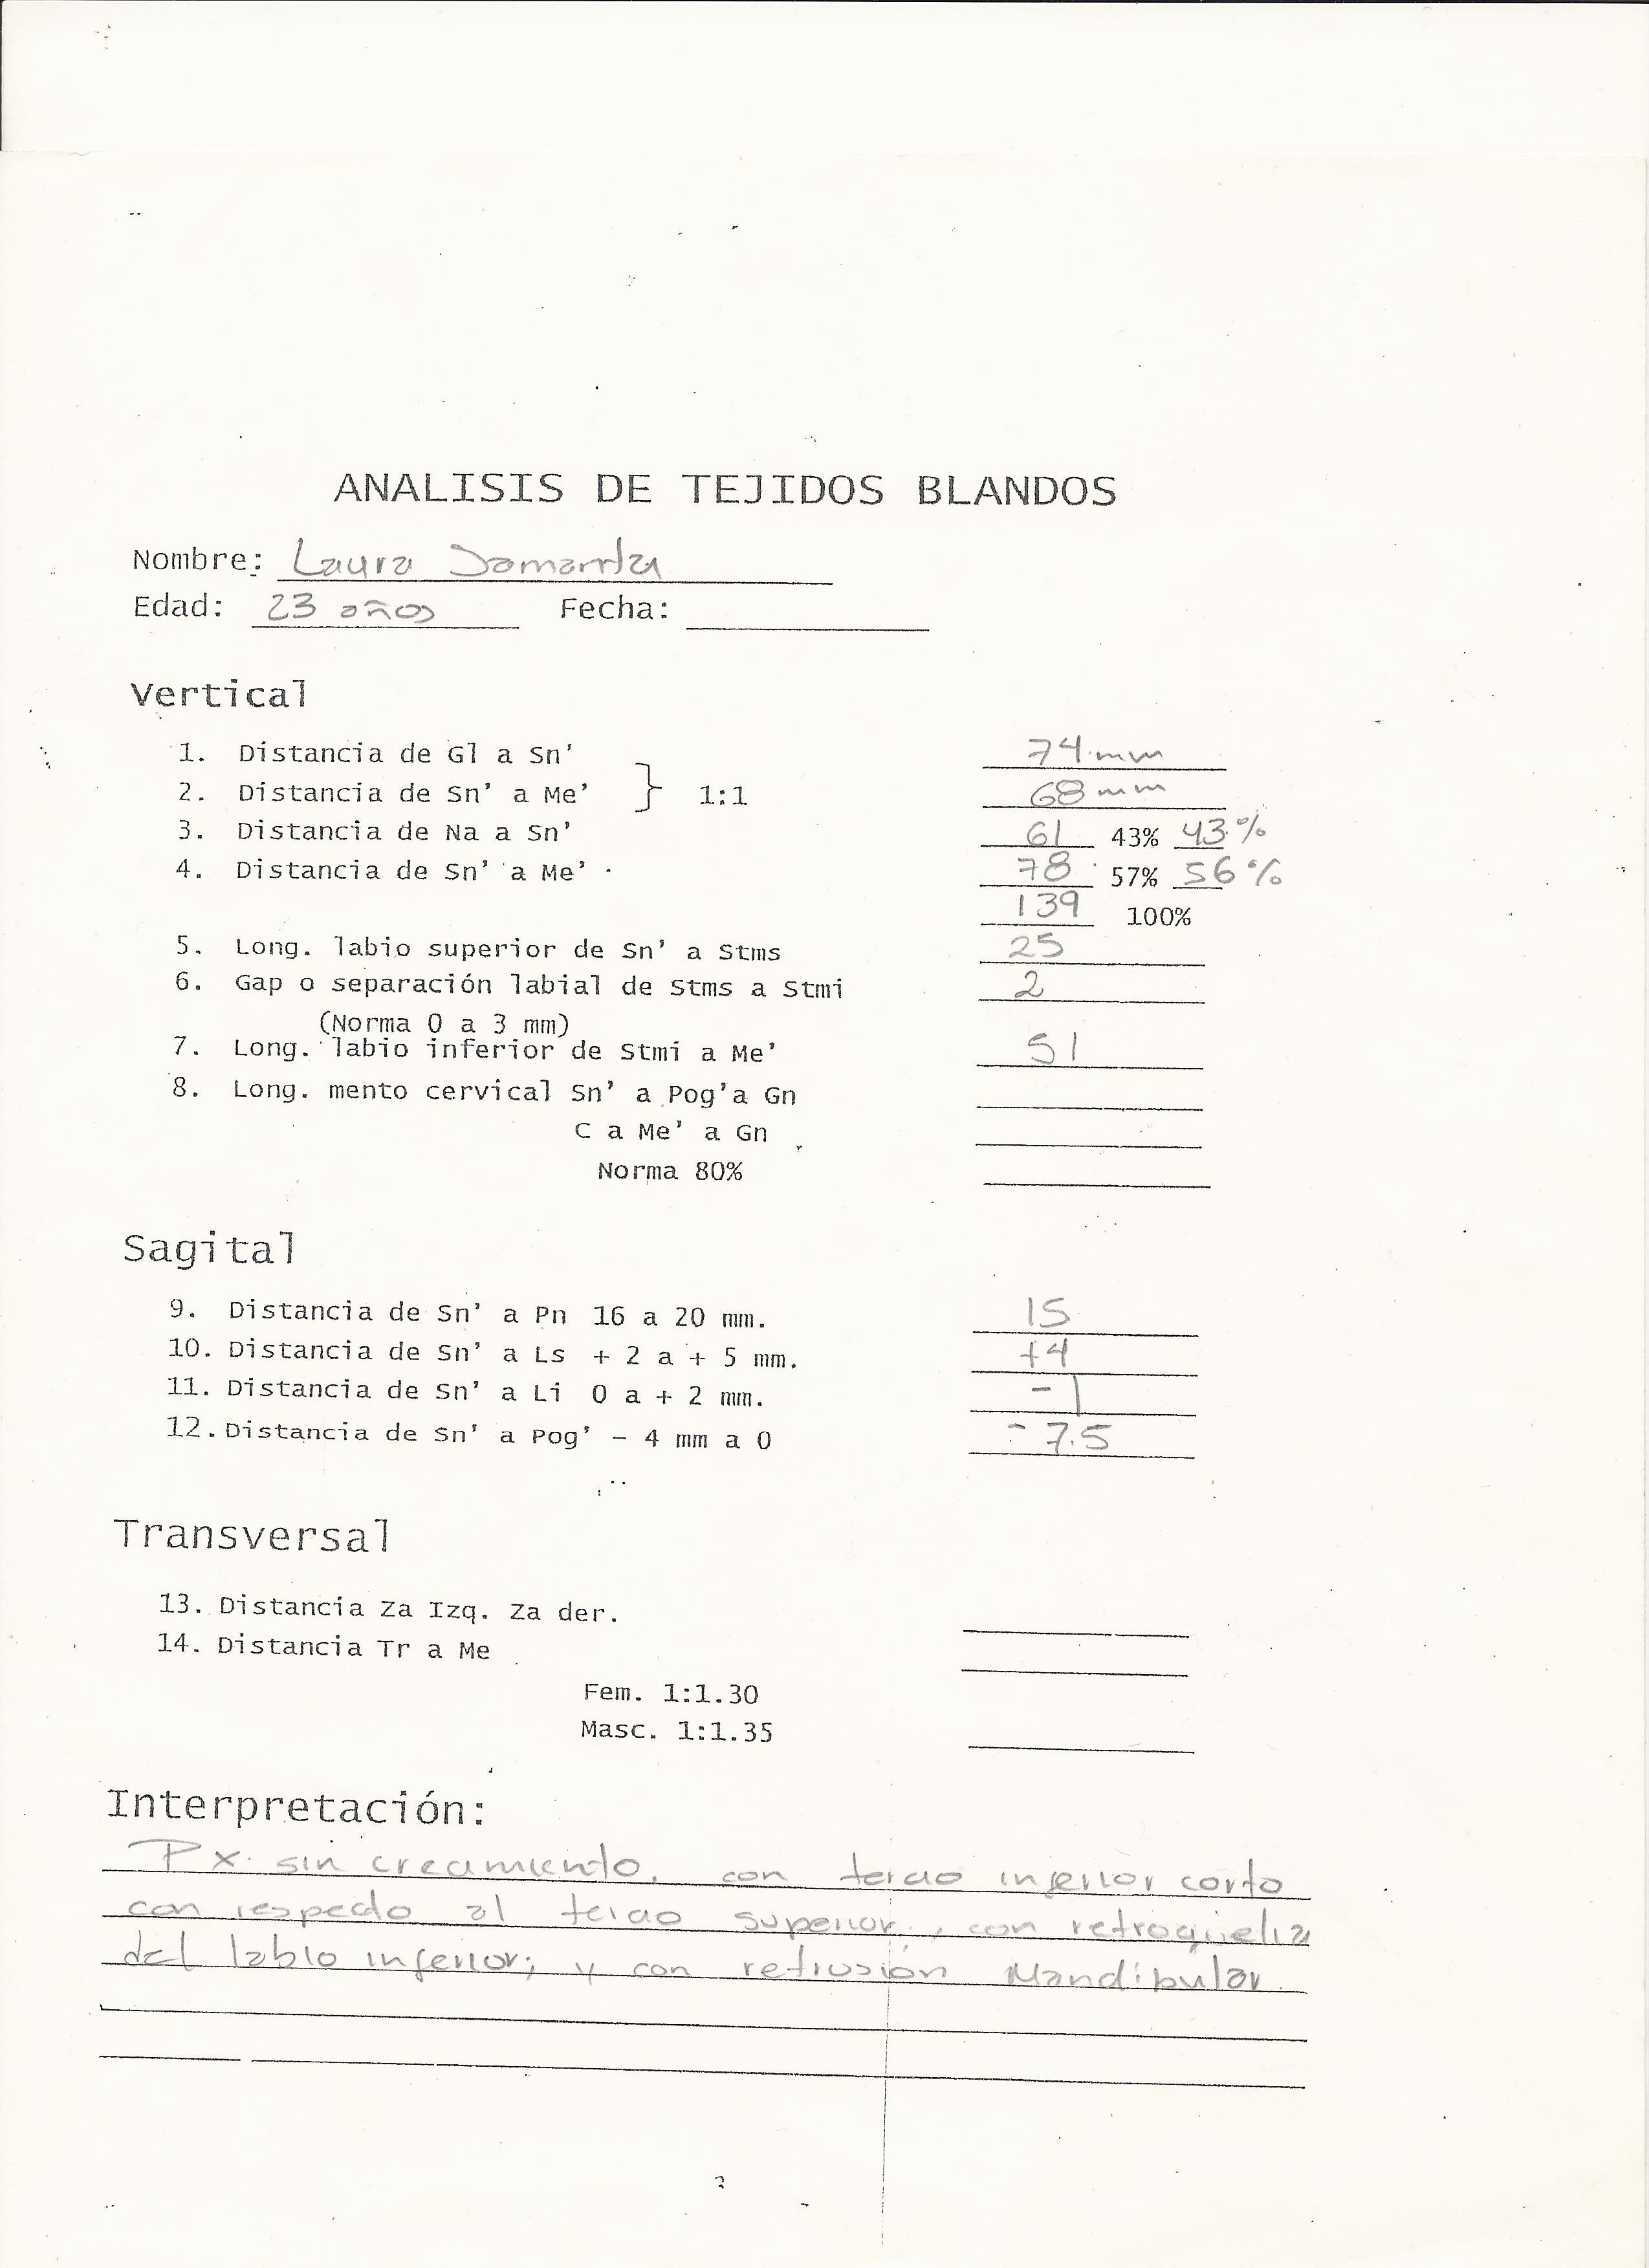 ANALISIS DE TEJIDOS BLANDOS
Nombre: Laura
Edad: 23 años Fecha:
Vertical
1. Distancia de Gl a Sn' 74 mm
2. Distancia de Sn' a Me' } 1:1 68 mm
3. Distancia de Na a Sn' 61 43% 43%
4. Distancia de Sn' a Me' 78 57% 56%
139 100%
5. Long. labio superior de Sn' a Stms 25
6. Gap o separación labial de Stms a Stmi 2
(Norma 0 a 3 mm)
7. Long. labio inferior de Stmi a Me' 51
8. Long. mento cervical Sn' a Pog'a Gn
C a Me' a Gn
Norma 80%
Sagital
9. Distancia de Sn' a Pn 16 a 20 mm. 15
10. Distancia de Sn' a Ls + 2 a + 5 mm. +4
11. Distancia de Sn' a Li 0 a + 2 mm. -1
12. Distancia de Sn' a Pog' - 4 mm a 0 -7.5
Transversal
13. Distancia Za Izq. Za der.
14. Distancia Tr a Me
Fem. 1:1.30
Masc. 1:1.35
Interpretación:
Px. sin crecimiento, con tercio inferior corto
con respecto al tercio superior, con retroquelia
del labio inferior; y con retrusión Mandibular.